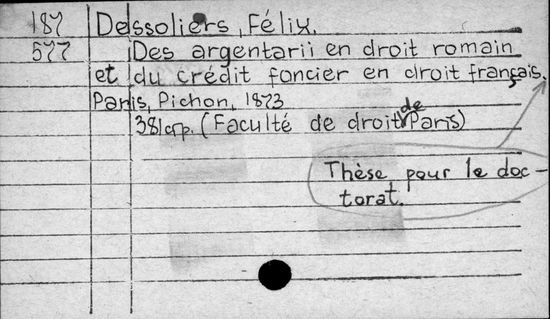 187 Dessoliers, Félix.
577 Des argentarii en droit romain
et du crédit foncier en droit français.
Paris, Pichon, 1873
381 cfp. (Faculté de droit de Paris)
Thèse pour le doc-
torat.